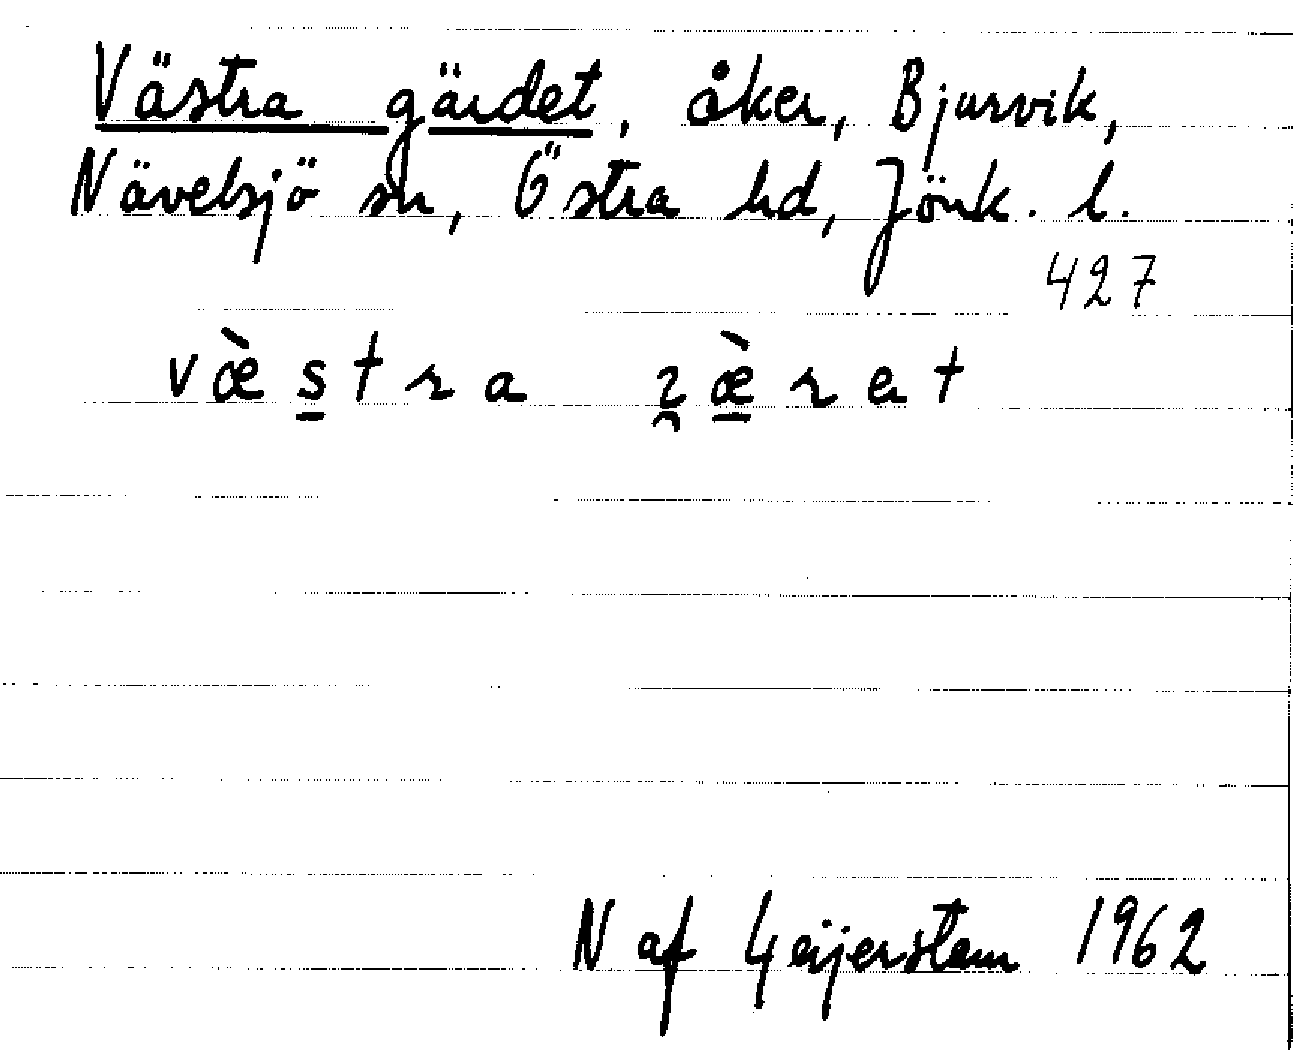 Västra gärdet, åker, Bjurvik,
Nävelsjö sn, Östra hd, Jönk. l.
427
væ̀s̠tra ɀæ̠̀ret
N af Geijerstam 1962